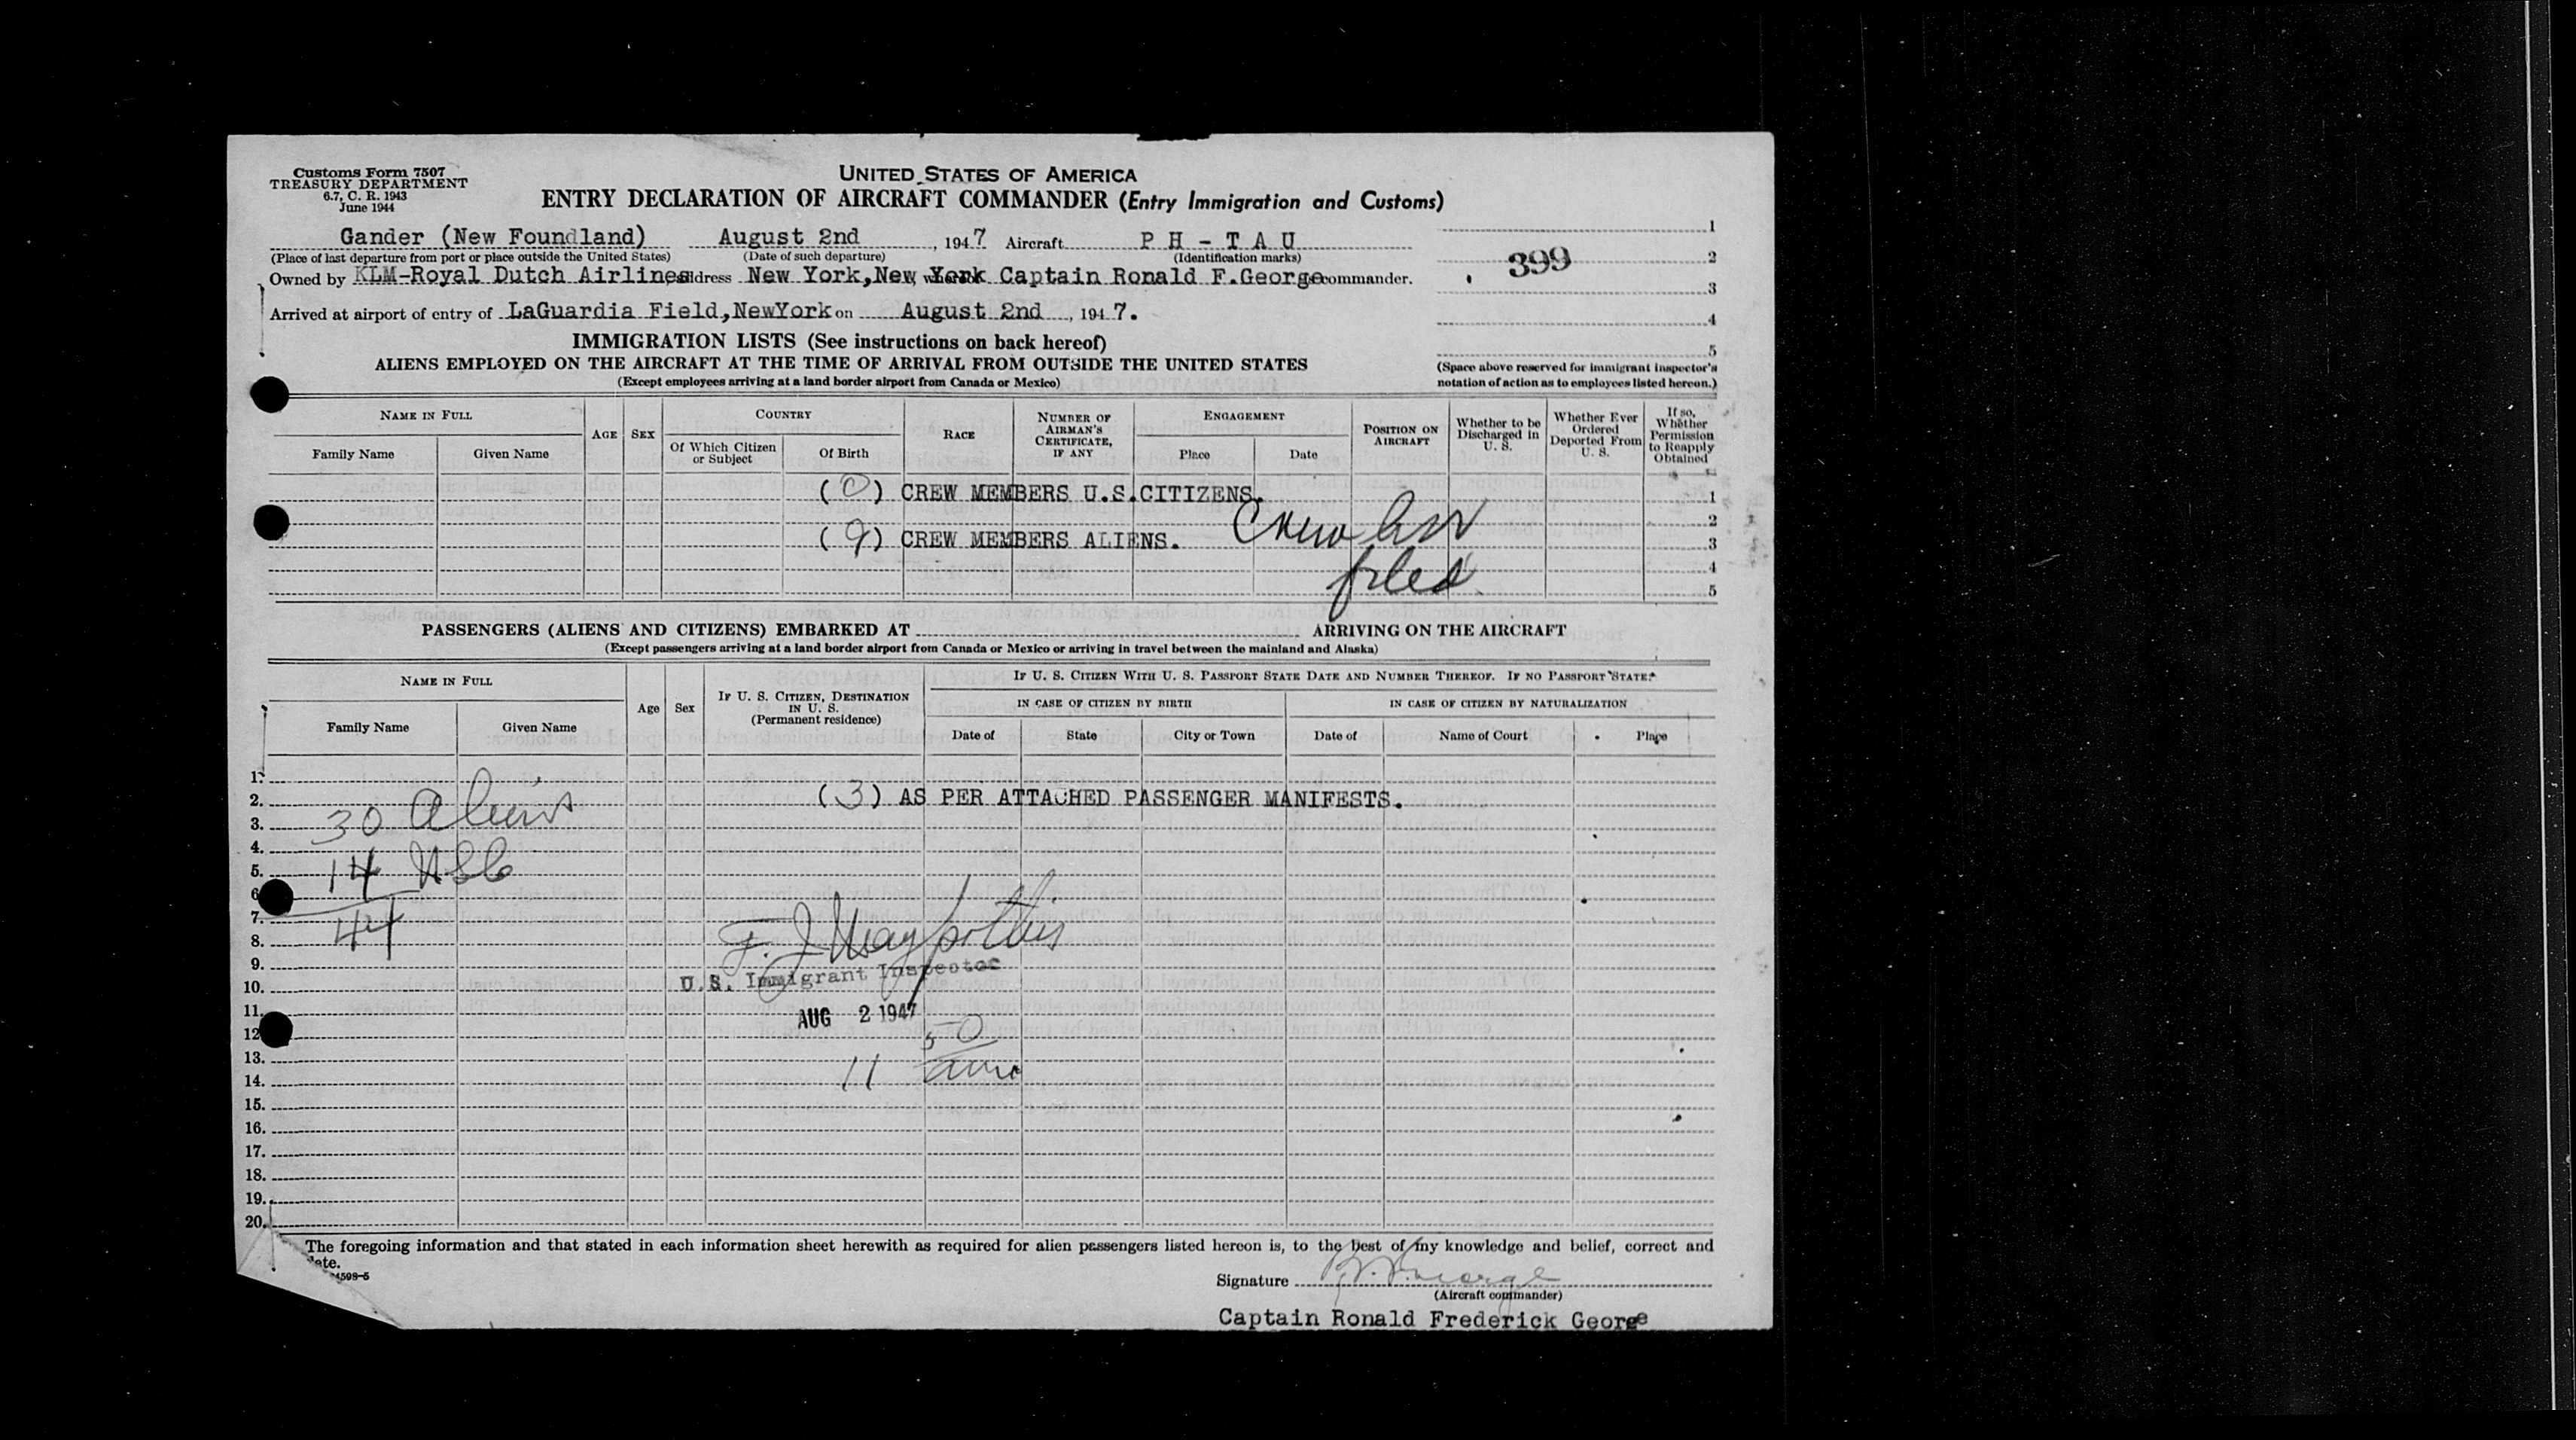 Customs Form 7507
TREASURY DEPARTMENT
6.7, C. R. 1943
June 1944
UNITED STATES OF AMERICA
ENTRY DECLARATION OF AIRCRAFT COMMANDER (Entry Immigration and Customs)
Gander (New Foundland) August 2nd , 1947 Aircraft P H - T A U
(Place of last departure from port or place outside the United States) (Date of such departure) (Identification marks)
Owned by KLM-Royal Dutch Airlines address New York,New York Captain Ronald F.George commander.
Arrived at airport of entry of LaGuardia Field,NewYork on August 2nd , 1947.
1
2
399
3
4
5
(Space above reserved for immigrant inspector's
notation of action as to employees listed hereon.)
IMMIGRATION LISTS (See instructions on back hereof)
ALIENS EMPLOYED ON THE AIRCRAFT AT THE TIME OF ARRIVAL FROM OUTSIDE THE UNITED STATES
(Except employees arriving at a land border airport from Canada or Mexico)
NAME IN FULL
Family Name
Given Name
AGE
SEX
COUNTRY
Of Which Citizen
or Subject
Of Birth
RACE
NUMBER OF
AIRMAN'S
CERTIFICATE,
IF ANY
ENGAGEMENT
Place
Date
POSITION ON
AIRCRAFT
Whether to be
Discharged in
U. S.
Whether Ever
Ordered
Deported From
U. S.
If so,
Whether
Permission
to Reapply
Obtained
(0) CREW MEMBERS U.S.CITIZENS. 1
2
(9) CREW MEMBERS ALIENS. 3
Crew list
filed
4
5
PASSENGERS (ALIENS AND CITIZENS) EMBARKED AT ARRIVING ON THE AIRCRAFT
(Except passengers arriving at a land border airport from Canada or Mexico or arriving in travel between the mainland and Alaska)
NAME IN FULL
Family Name
Given Name
Age
Sex
IF U. S. CITIZEN, DESTINATION
IN U. S.
(Permanent residence)
IF U. S. CITIZEN WITH U. S. PASSPORT STATE DATE AND NUMBER THEREOF. IF NO PASSPORT STATE:
IN CASE OF CITIZEN BY BIRTH
IN CASE OF CITIZEN BY NATURALIZATION
Date of
State
City or Town
Date of
Name of Court
Place
1.
2. (3) AS PER ATTACHED PASSENGER MANIFESTS.
3. 30 Aliens
4.
5. 14 USC
6.
7.
8. 44
9.
U.S. Immigrant Inspector
10.
11. AUG 2 1947
12.
13. 50
14. 11 am
15.
16.
17.
18.
19.
20.
The foregoing information and that stated in each information sheet herewith as required for alien passengers listed hereon is, to the best of my knowledge and belief, correct and
Signature R.F. George
(Aircraft commander)
Captain Ronald Frederick George